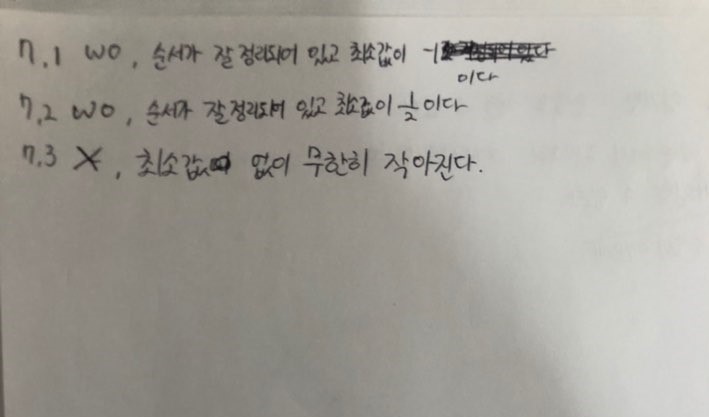 7.1 WO, 순서가 잘 정리되어 있고 최소값이 -1
이다
7.2 WO, 순서가 잘 정리되어 있고 최소값이 1/2 이다
7.3 X, 최소값 없이 무한히 작아진다.